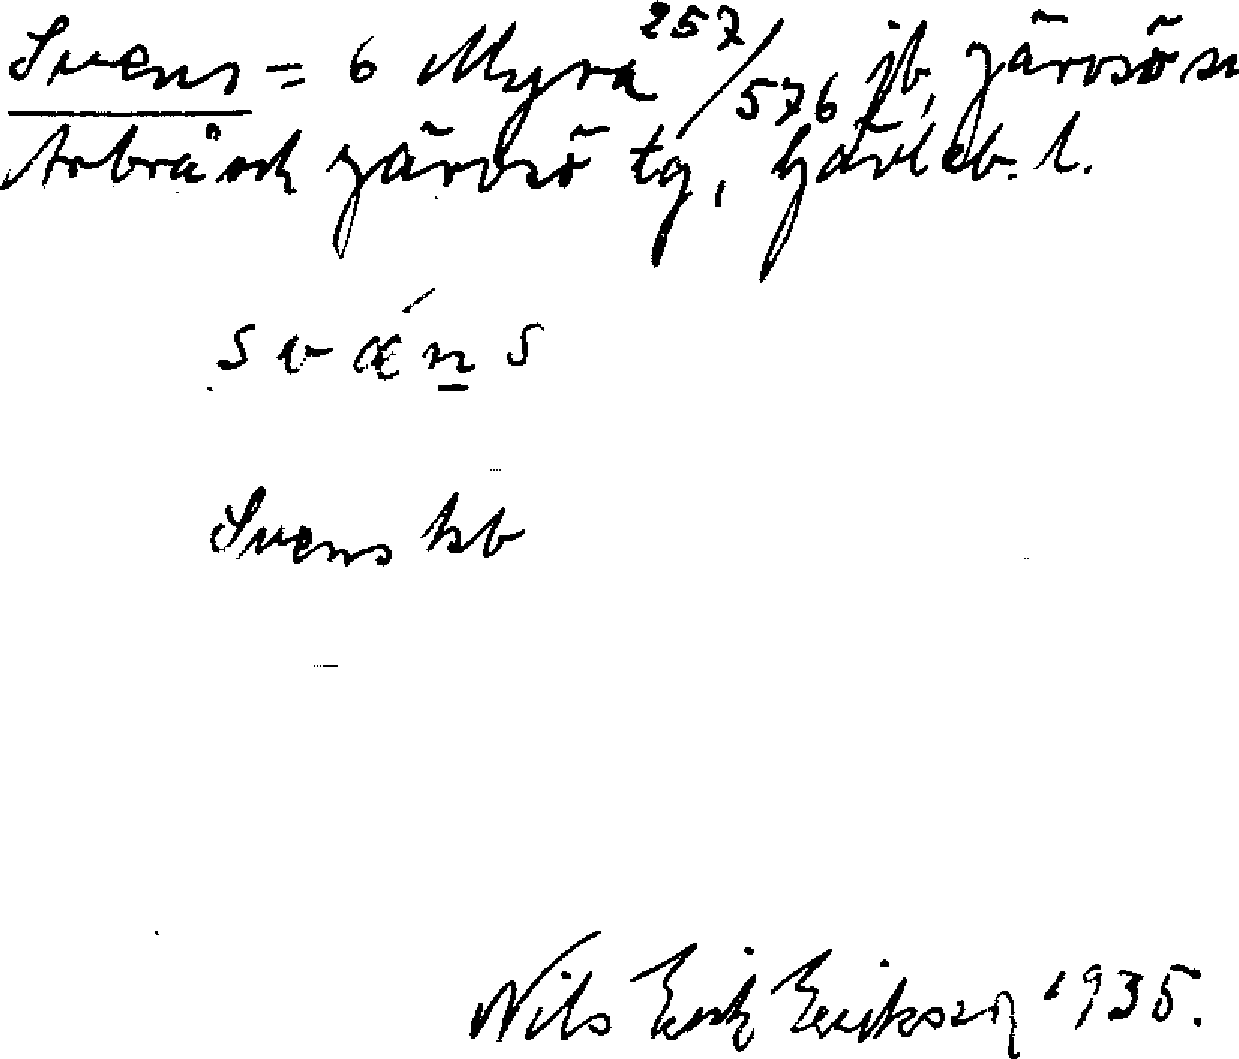 Svens = 6 Myra 257/576 jb, Järvsö sn
Arbrå och Järvsö tg, Gävleb. l.
s v ǽ n s
Svens kb
Nils Erik Eriksson 1935.